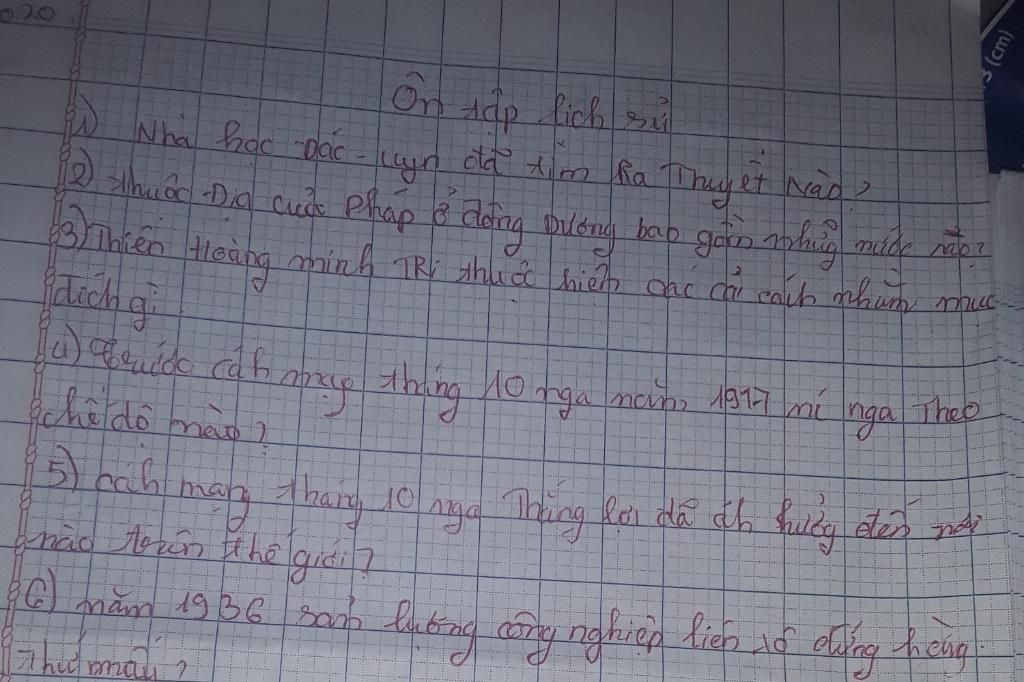 020
Ôn tập lịch sử
1) Nhà học Đác-uyn đã tìm ra Thuyết Nào?
2) thuộc Địa cuả Pháp ở đông Dương bao gồm những nước nào?
3) Thiên Hoàng minh TRị thuộc hiện các cải cách nhằm mục
đích gì
4) trước cách mạng tháng 10 nga năm 1917 nước nga Theo
chế độ nào?
5) cách mạng tháng 10 nga Thắng lợi đã ảh hưởng đến nơi
nào trên thế giới?
6) năm 1936 sản lượng công nghiệp liên xô đứng hàng
thứ mấy?
3 (cm)